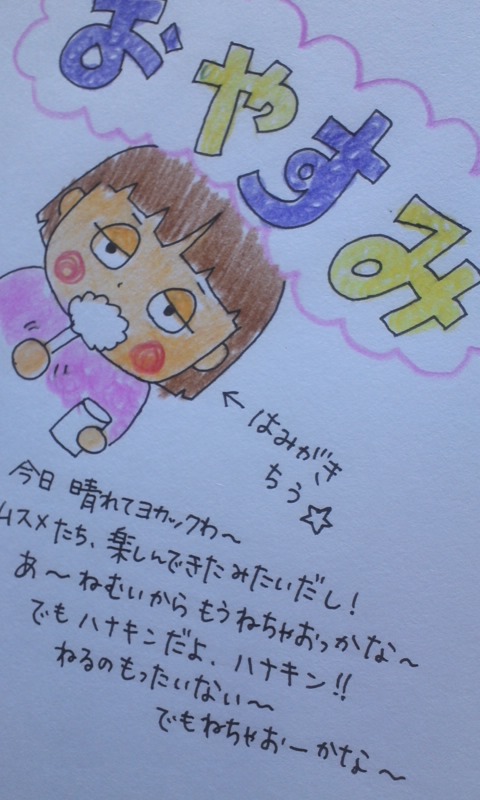 おやすみ
はみがき
ちう☆
今日 晴れてヨカッタわ～
ムスメたち、楽しんできたみたいだし！
あ～ねむいから もうねちゃおっかな～
でもハナキンだよ、ハナキン!!
ねるのもったいない～
でもねちゃおーかな～